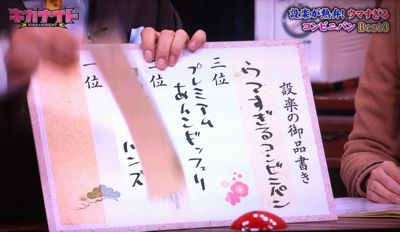 キカナイト
KIKA★KNIGHT
設楽が熱弁!ウマすぎる
コンビニパン Best3
設楽の御品書き
ウマすぎるコンビニパン
三位
プレミアム
あんこギッフェリ
二位
一位